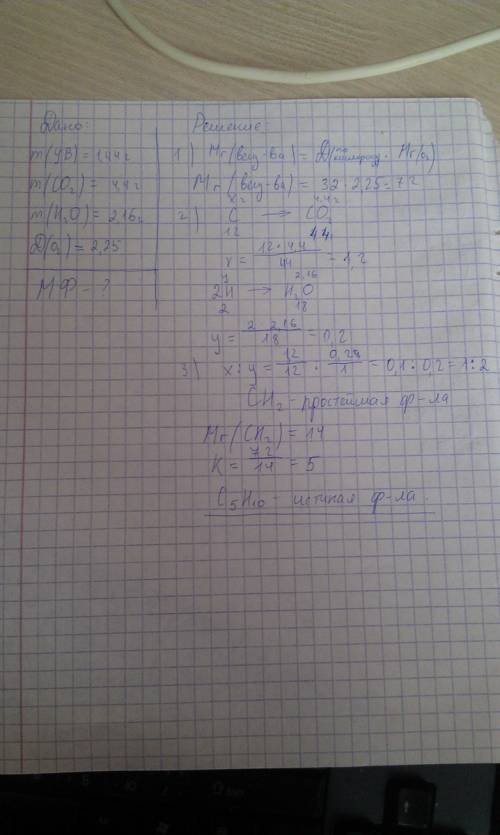 Дано:
m(УВ) = 1,44 г
m(CO₂) = 4,4 г
m(H₂O) = 2,16 г
D(O₂) = 2,25
МФ - ?
Решение:
1) Mr(вещ-ва) = D(по кислороду) · Mr(O₂)
Mr(вещ-ва) = 32 · 2,25 = 72
x г 4,4 г
2) C → CO₂
12 44
x = 12 · 4,4 / 44 = 1,2
y 2,16
2H → H₂O
2 18
y = 2 · 2,16 / 18 = 0,2
3) x : y = 12 / 12 : 0,24 / 1 = 0,1 : 0,2 = 1 : 2
CH₂ - простейшая ф-ла
Mr(CH₂) = 14
K = 72 / 14 = 5
C₅H₁₀ - истиная ф-ла